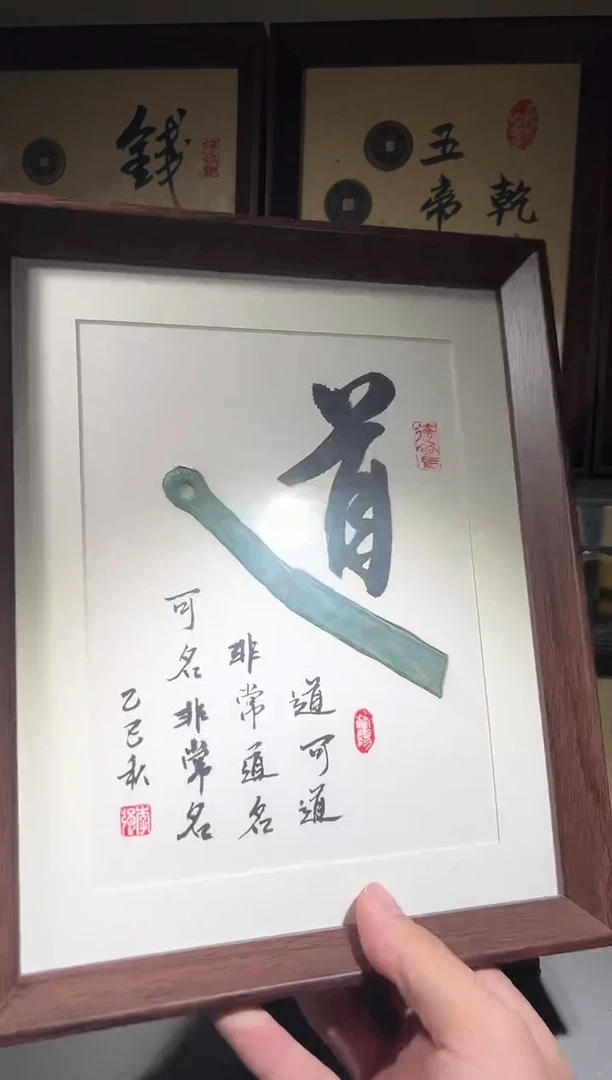 道
道可道
非常道名
可名非常名
乙巳秋
乾
五帝
錢